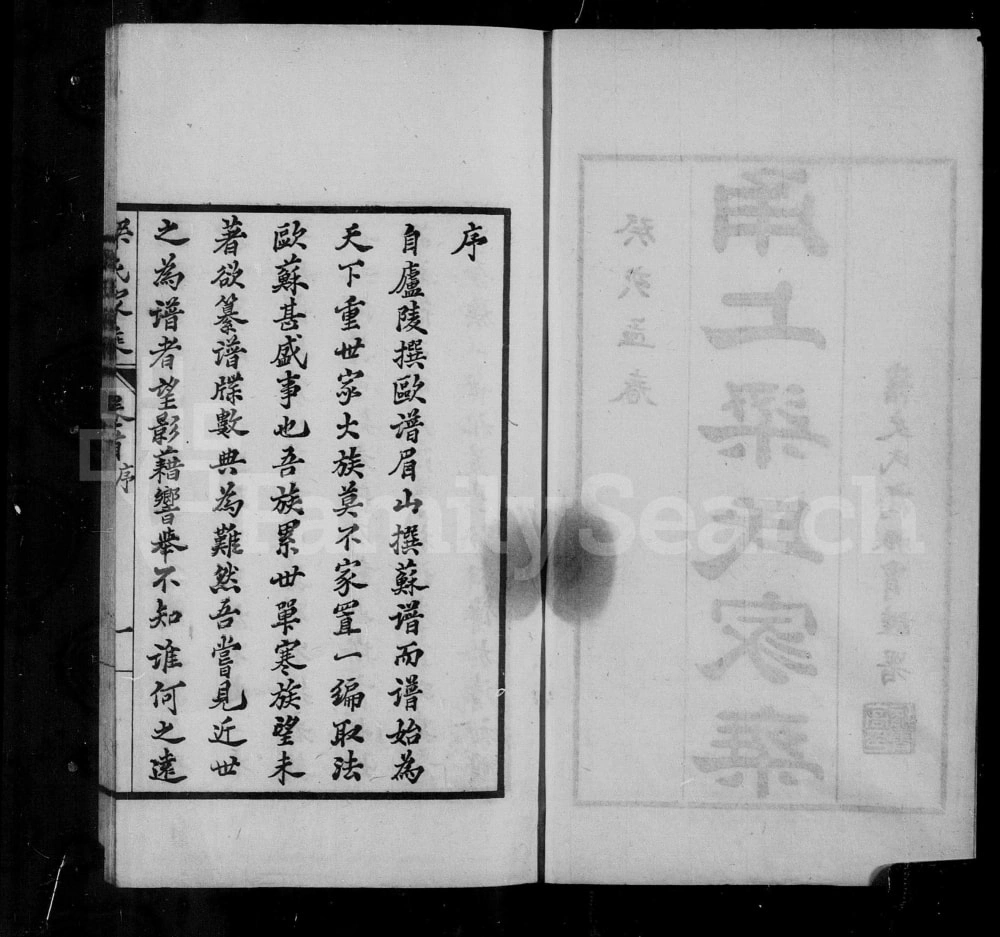 甬上梁氏家乘
序
自廬陵撰歐譜眉山撰蘇譜而譜始為
天下重世家大族莫不家置一編取法
歐蘇甚盛事也吾族累世單寒族望未
著欲纂譜牒數典為難然吾嘗見近世
之為譜者望影藉響舉不知誰何之遠
序 一
FamilySearch